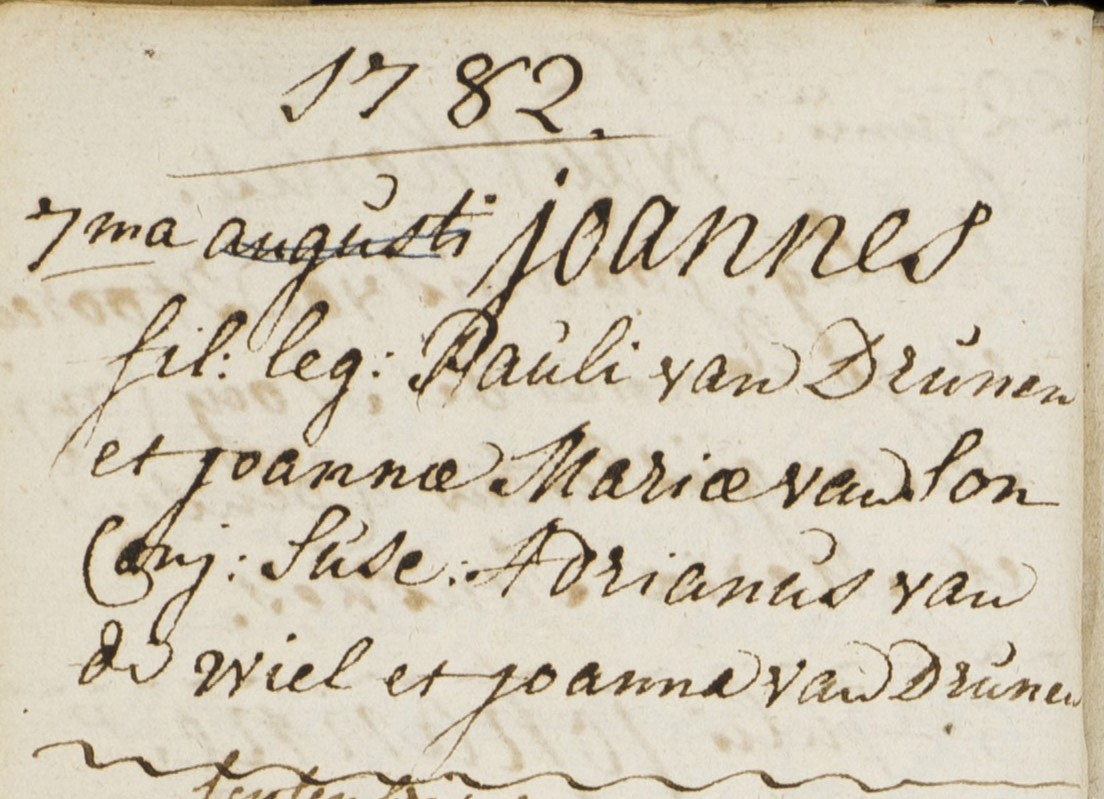 1782.
7ma augusti joannes
fil: leg: Pauli van Drunen
et joannæ Mariæ van Son
Conj: Susc: Adrianus van
de Wiel et joanna van Drunen